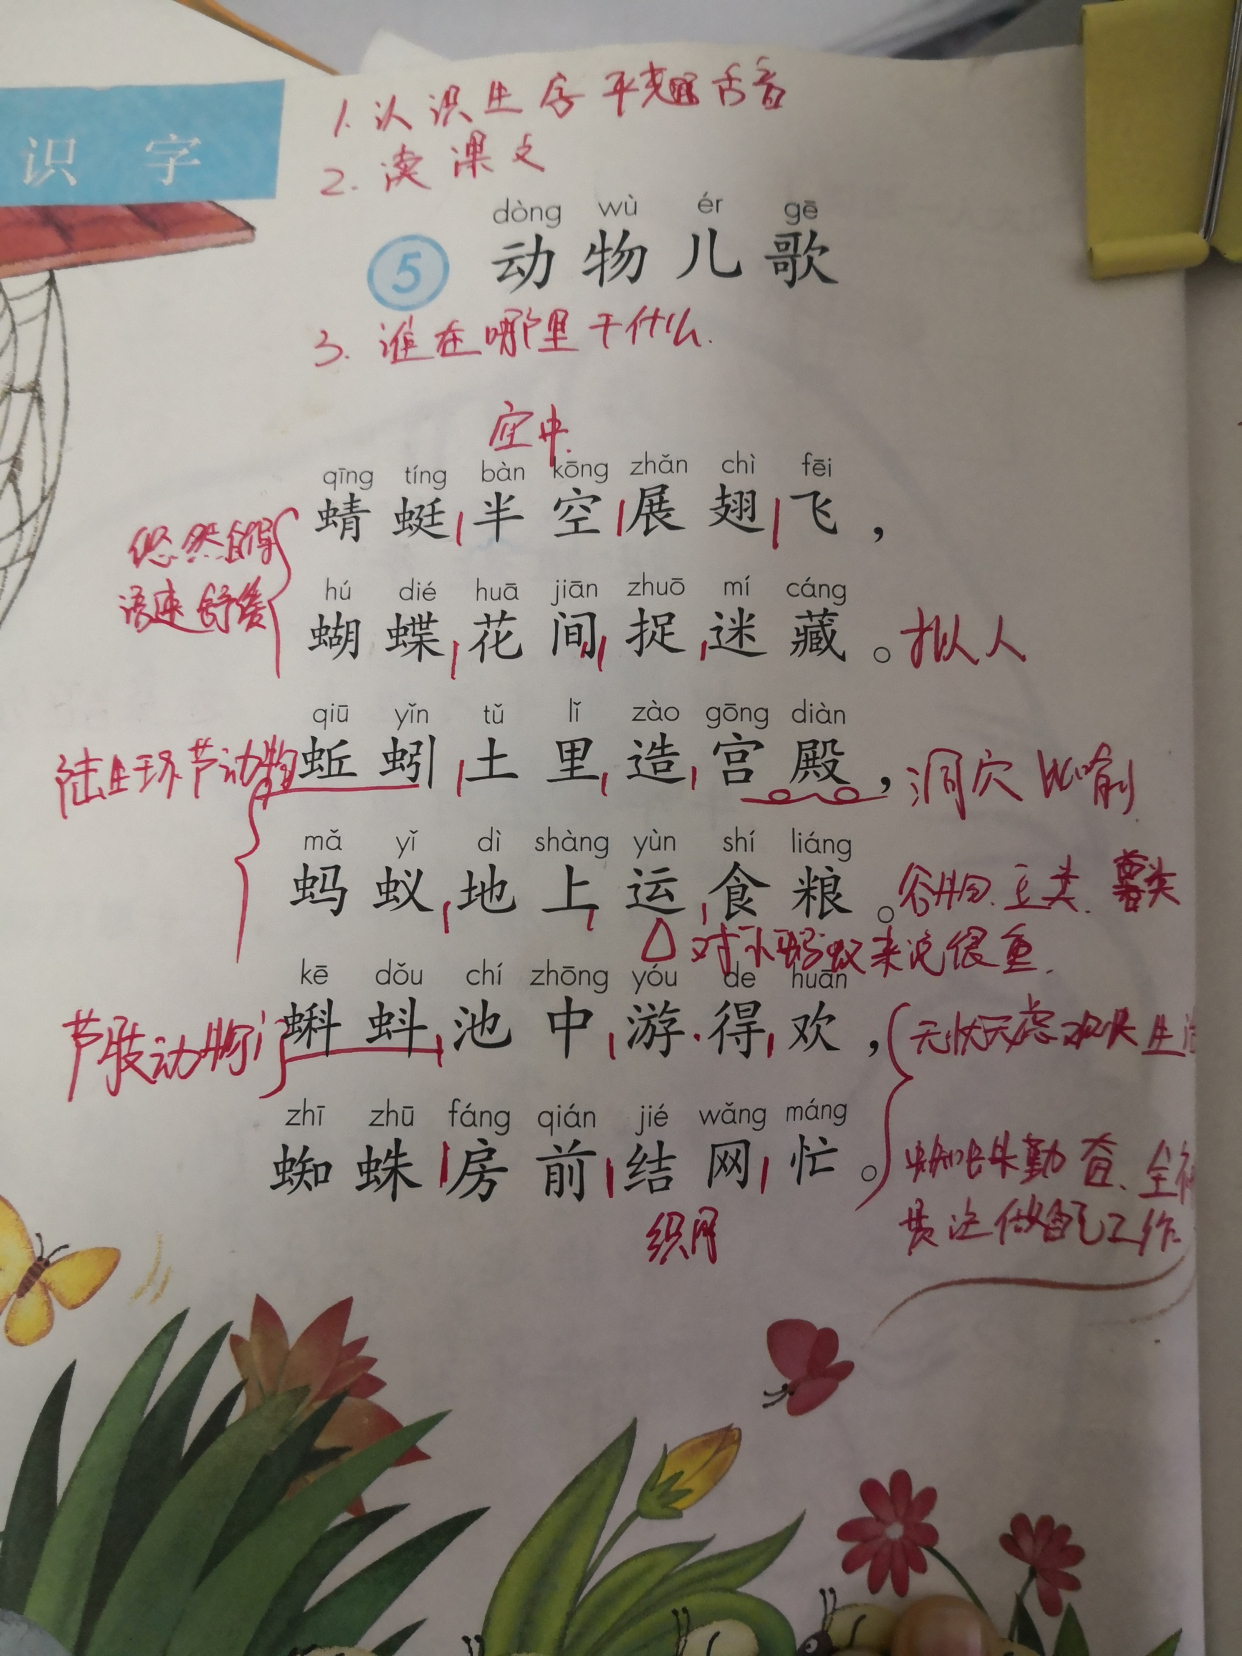 识字
1.认识生字 平翘舌音
2.读课文
dòng wù ér gē
5 动物儿歌
3.谁在哪里干什么.
空中.
qīng tíng bàn kōng zhǎn chì fēi
蜻蜓半空展翅飞，
悠然自得
语速舒缓
hú dié huā jiān zhuō mí cáng
蝴蝶花间捉迷藏。拟人
qiū yǐn tǔ lǐ zào gōng diàn
陆生环节动物 蚯蚓土里造宫殿，洞穴 比喻
mǎ yǐ dì shàng yùn shí liáng
蚂蚁地上运食粮。谷物.豆类.薯类
对小蚂蚁来说很重.
kē dǒu chí zhōng yóu de huān
节肢动物 蝌蚪池中游得欢，无忧无虑 欢快 生活
zhī zhū fáng qián jié wǎng máng
蜘蛛房前结网忙。蜘蛛勤奋、全神
贯注做自己工作
织网